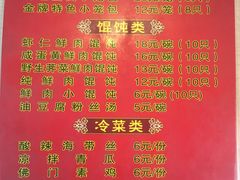 金牌特色小笼包 12元笼(8只)
馄饨类
虾仁鲜肉馄饨 18元碗(10只)
咸蛋黄鲜肉馄饨 16元碗(10只)
野生荠菜鲜肉馄饨 15元碗(10只)
纯鲜肉馄饨 12元碗(10只)
鲜肉小馄饨 6元(10只)
油豆腐粉丝汤 5元碗
冷菜类
酸辣海带丝 6元份
凉拌青瓜 6元份
佛门素鸡 6元份